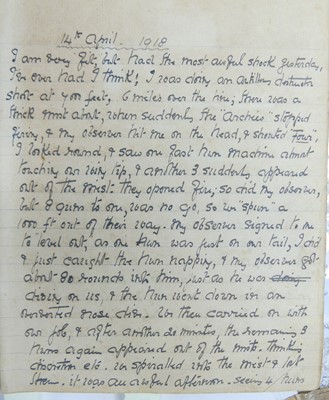 14th April. 1918
I am very fit, but had the most awful shock yesterday,
I've ever had I think! I was doing an artillery destructive
shoot at 4000 feet, 6 miles over the line; there was a
thick mist about, when suddenly, the "archies" stopped
firing, & my observer hit me on the head, & shouted "four",
I looked round, & saw one fast Hun machine almost
touching our wing tip, & another 3 suddenly appeared
out of the mist. They opened fire; so did my observer,
but 8 guns to one, was no go, so we "spun" a
1000 ft out of their way. My observer signed to me
to level out, as one Hun was just on our tail, I did
& just caught the Hun napping, & my observer got
about 80 rounds into him, just as he was
diving on us, & the Hun went down in an
nose dive. We then carried on with
our job, & after another 20 minutes, the remaining 3
Huns again appeared out of the mist. thinking
discretion etc. we spiralled into the mist & lost
them. it was an awful afternoon. seeing 4 Huns